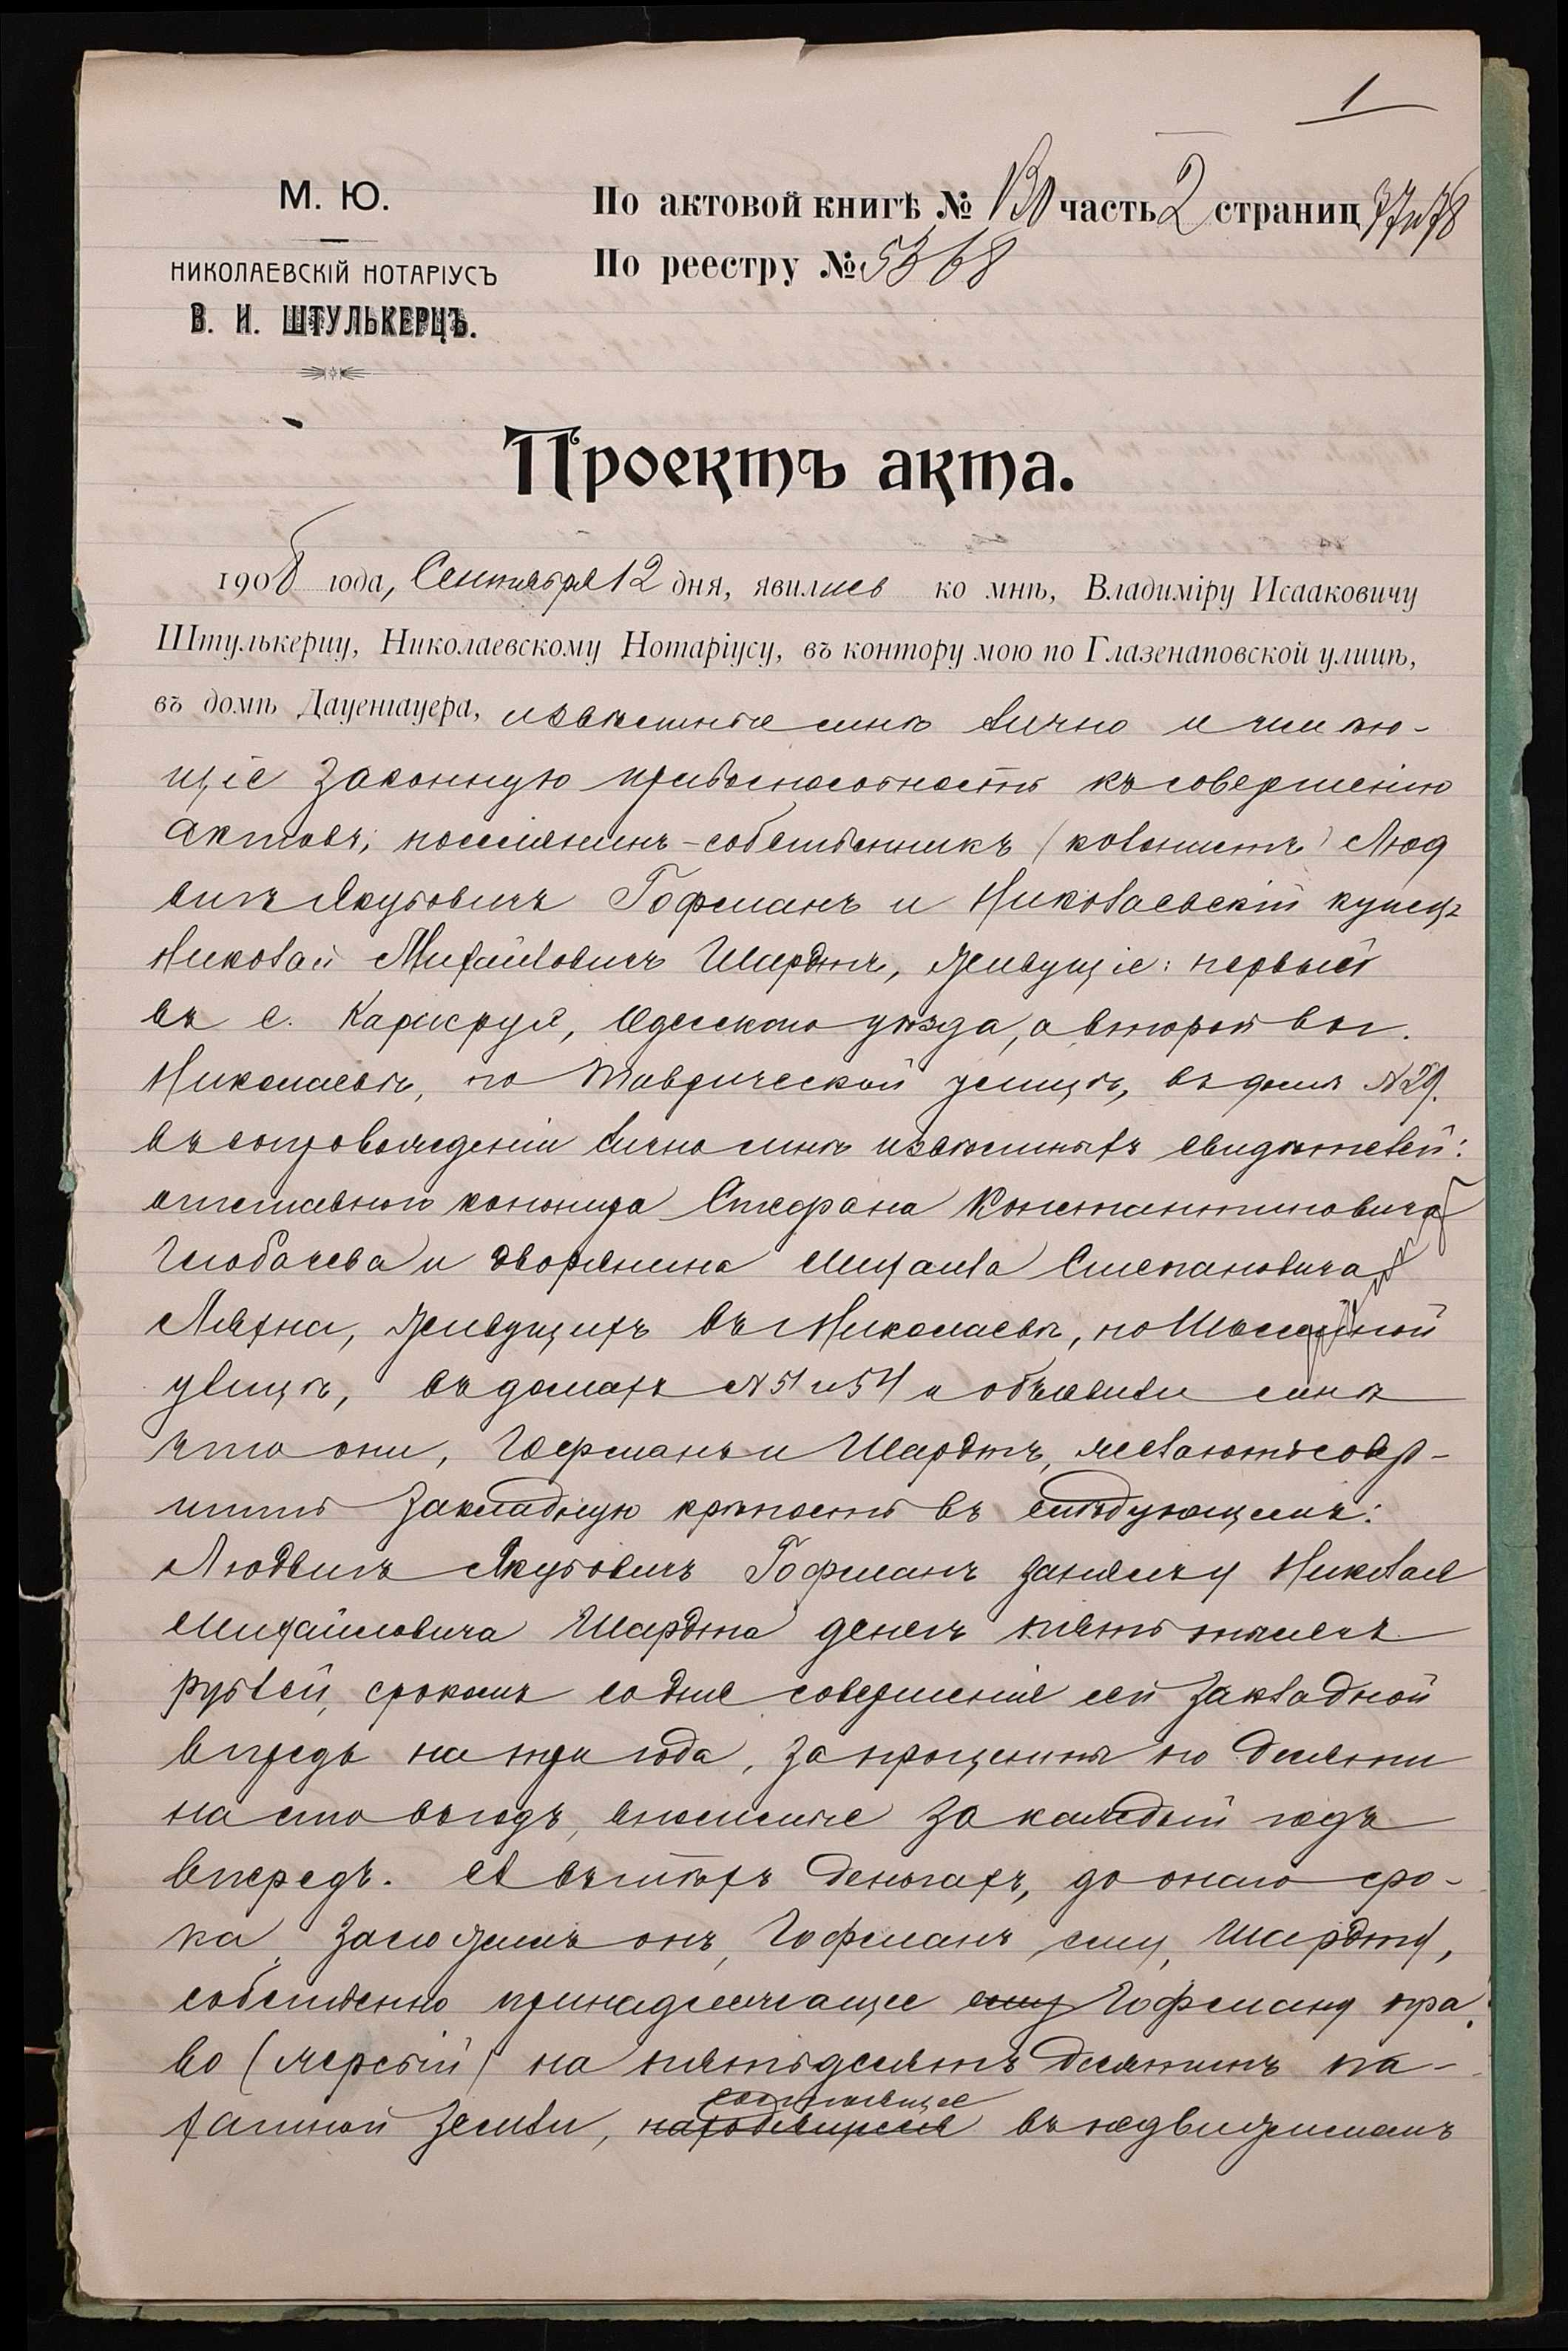 1
М. Ю.
НИКОЛАЕВСКІЙ НОТАРІУСЪ
В. И. ШТУЛЬКЕРЦЪ.
По актовой книгѣ № часть 2 страниц 77 и 78
По реестру № 5368
Проектъ акта.
1908 года, Сентября 12 дня, явились ко мнѣ, Владиміру Исааковичу
Штулькерцу, Николаевскому Нотаріусу, въ контору мою по Глазенаповской улицѣ,
въ домѣ Дауенгауера, извѣстные мнѣ лично и имѣю-
щіе законную правоспособность къ совершенію
актовъ, поселянинъ-собственникъ (колонистъ) Люд
вигъ Якубовичъ Гофманъ и Николаевскій купецъ
Николай Михайловичъ Шардтъ, живущіе: первый
въ с. Карлсруэ, Одесскаго уѣзда, а второй въ г.
Николаевѣ, по Таврической улицѣ, въ домѣ №29.
въ сопровожденіи лично мнѣ извѣстныхъ свидѣтелей:
отставного Стефана Константиновича
и дворянина Михаила Степановича
Ляхна, живущихъ въ Николаевѣ, по
улицѣ, въ домахъ №51 и 54 и объявили мнѣ
что они, Гофманъ и Шардтъ, желаютъ совер-
шить закладную крѣпость въ слѣдующемъ:
Людвигъ Якубовичъ Гофманъ занялъ у Николая
Михайловича Шардта денегъ пять тысячъ
рублей, срокомъ со дня совершенія сей закладной
впредь на три года, за проценты по десяти
на сто въ годъ, вносимые за каждый годъ
впередъ. А въ тѣхъ деньгахъ, до онаго сро-
ка, заложилъ онъ, Гофманъ, ему, Шардту,
собственно принадлежащее ему Гофману пра-
во (жеребій) на пятьдесятъ десятинъ па-
состоящее
хатной земли, находящееся въ недвижимомъ